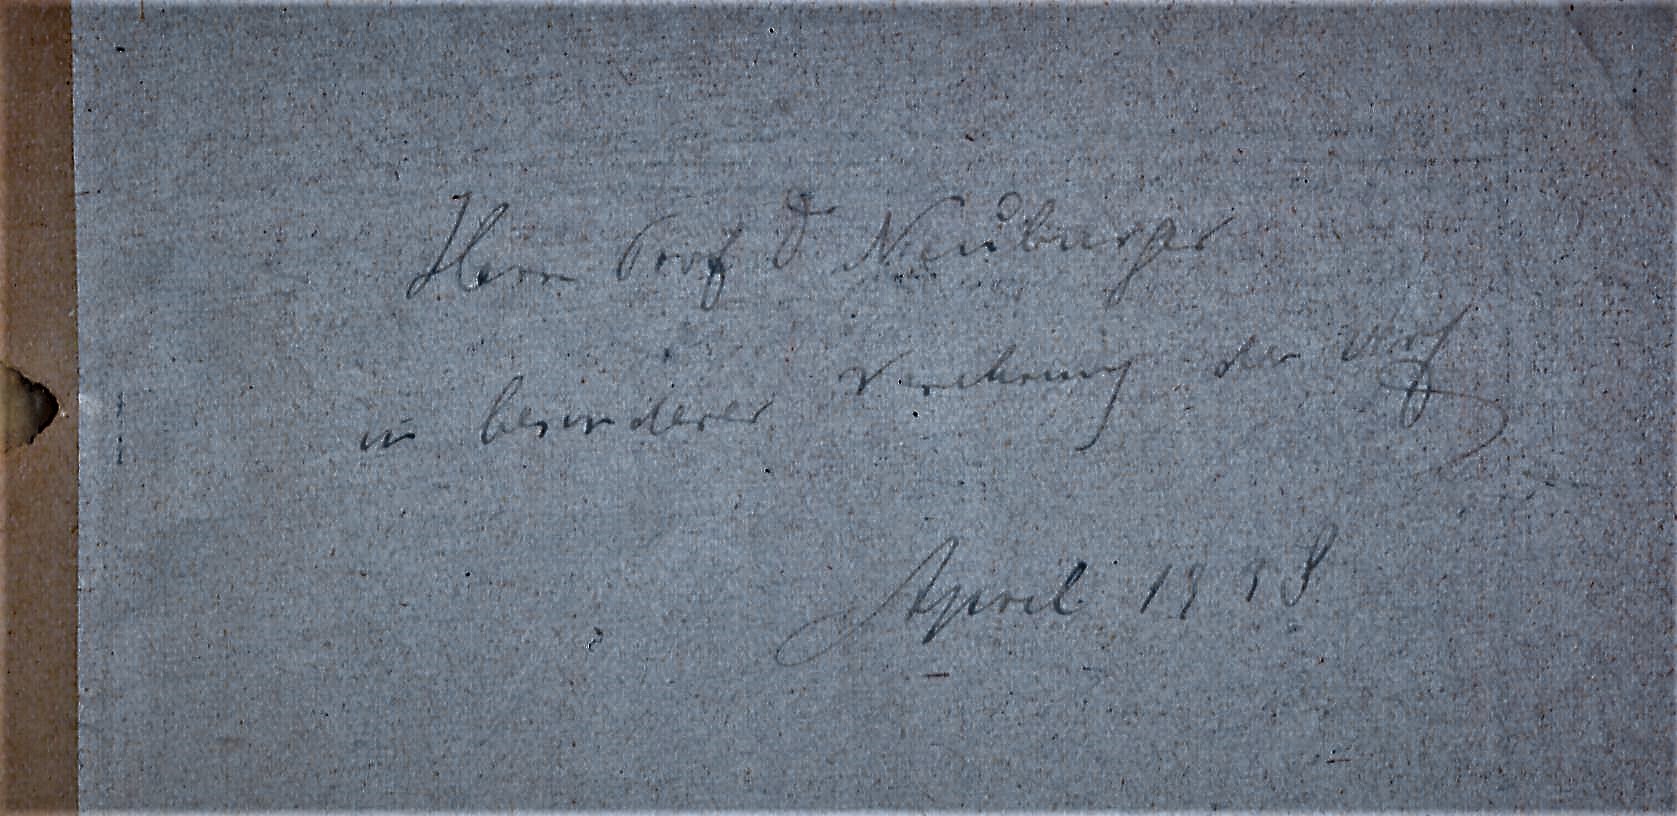 Herrn Prof Dr Neuburger
in besonderer Verehrung der Verf
April 1938